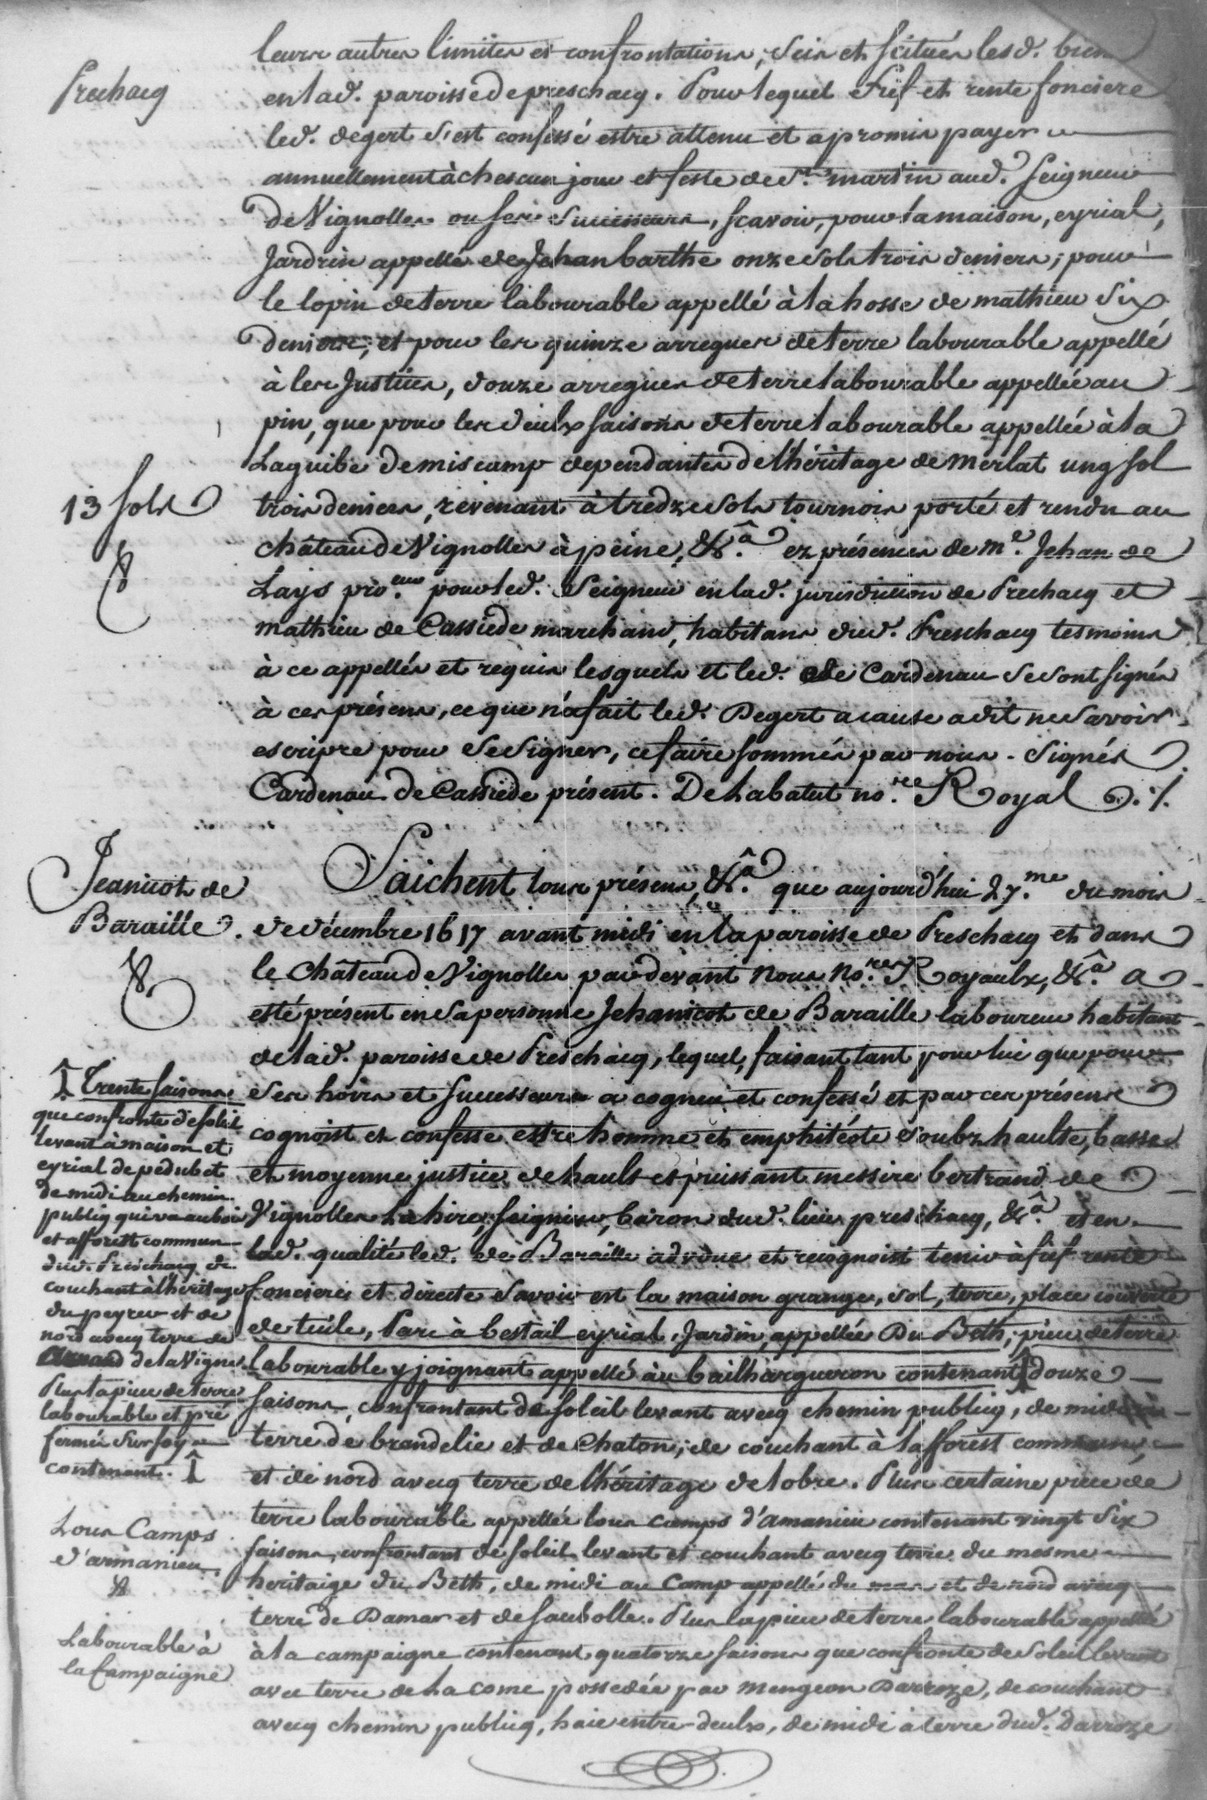 Prechacq
leurs autres limites et confrontations, Seis et scitués lesd. biens
en lad. paroisse de preschacq. Pour lequel Fief et rente fonciere
led. degert s'est confessé estre attenu et a promis payer
annuellement à chescun jour et feste de St. martin aud. Seigneur
De Vignolles ou ses Successeurs, scavoir, pour la maison, eyrial,
Jardrin appellé de Jehan barthe onze sols trois deniers; pour
le lopin de terre labourable appellé à la hosse de mathieu Six
deniers; et pour les quinze arregues de terre labourable appellé
à les Justices, douze arregues de terre labourable appellée au
pin, que pour les deulx saisons de terre labourable appellée à la
Laguibe demiscamp dependantes de l'héritage de merlat ung sol
13 sols
trois deniers, revenant à tredze sols tournois porté et rendu au
château de Vignolles à peine, &ca. ez présences de me. Jehan de
Lays pro.eur pour led. Seigneur en lad. jurisdiction de Prechacq et
mathieu de Cassiede marchand, habitans dud. Preschacq tesmoins
à ce appellés et requis lesquels et led. de Cardenau se sont signés
à ces présens, ce que n'a fait led. Degert a cause a dit ne savoir
escripre pour se signer, ce faire sommés par nous. Signés
Cardenau. de Cassiede présent. Delabatut no.re Royal ./.
Jeanicot de
Baraille.
Saichent tous présens, &ca. que aujourd'hui 27.me du mois
de décembre 1617 avant midi en la paroisse de Preschacq et dans
le Château de Vignolles par devant Nous No.res Royaulx, &ca a
esté présent en sa personne Jehanicot de Baraille laboureur habitant
de lad. paroisse de Preschacq, lequel, faisant tant pour lui que pour
ses hoirs et successeurs a cogneu et confessé et par ces présens
cognoist et confesse estre homme et emphitéote soubz haulte, basse
et moyenne justice de hault et puissant messire bertrand de
Vignolles Lahire, seigneur, baron dud. lieu preschacq, &ca et en
lad. qualité led. de Baraille advoue et recognoist tenir à fief rente
fonciere et directe Savoir est la maison grange, sol, terre, place couverte
de tuile, Parc à bestail eyrial, Jardin, appellée Du Beth, piece de terre
labourable y joignant appellé au bailhargueron contenant douze
saisons, confrontant de soleil levant avecq chemin publicq, de midi
terre de brandelie et de Chaton; de couchant à la fforest commune,
et de nord avecq terre de l'héritage de lobre. Plus certaine piece de
terre labourable appellée lous camps d'amanieu contenant vingt six
saisons, confrontant de soleil levant et couchant avecq terre du mesme
heritaige du Beth, de midi au Camp appellé du mas et de nord avecq
terre de Damar et de saubolle. Plus la piece de terre labourable appellée
à la campaigne contenant quatorze saisons que confronte de soleil levant
avec terre de Lacome possedée par mengeon Darroze, de couchant
avecq chemin publicq, haie entre-deulx, de midi à terre dud. Darroze
Trente saisons
que confronte de soleil
levant à maison et
eyrial de pédubet
de midi au chemin
publiq qui va au bois
et afforest commun
dud. Preschacq de
couchant à l'héritage
du peyre et de
nord avecq terre de
de la Vigne
Plus la piece de terre
labourable et pré
fermée sur soy
contenant.
Lous Camps
d'armanieu.
Labourable à
la Campaigne